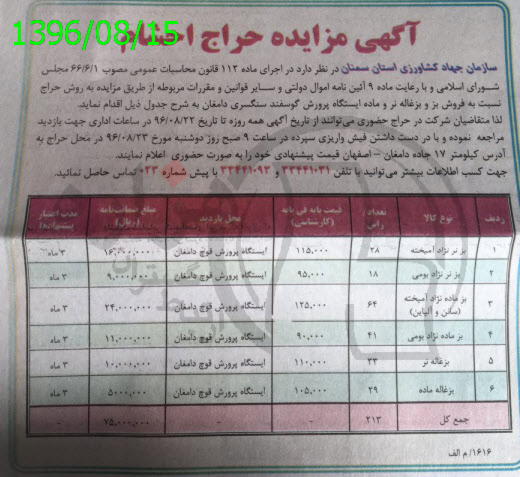 1396/08/15
آگهی مزایده حراج احشام
سازمان جهاد کشاورزی استان سمنان در نظر دارد در اجرای ماده ۱۱۲ قانون محاسبات عمومی مصوب ۶۶/۶/۱ مجلس
شورای اسلامی و با رعایت ماده ۹ آئین نامه اموال دولتی و سایر قوانین و مقررات مربوطه از طریق مزایده به روش حراج
نسبت به فروش بز و بزغاله نر و ماده ایستگاه پرورش گوسفند سنگسری دامغان به شرح جدول ذیل اقدام نماید.
لذا متقاضیان شرکت در حراج حضوری می‌توانند از تاریخ آگهی همه روزه تا تاریخ ۹۶/۰۸/۲۲ در ساعات اداری جهت بازدید
مراجعه نموده و با در دست داشتن فیش واریزی سپرده در ساعت ۹ صبح روز دوشنبه مورخ ۹۶/۰۸/۲۳ در محل حراج به
آدرس کیلومتر ۱۷ جاده دامغان – اصفهان قیمت پیشنهادی خود را به صورت حضوری اعلام نمایند.
جهت کسب اطلاعات بیشتر می‌توانید با تلفن ۳۳۴۴۱۰۳۱ و ۳۳۴۴۱۰۹۳ با پیش شماره ۰۲۳ تماس حاصل نمائید.
ردیف نوع کالا تعداد / راس قیمت پایه فی پایه (کارشناسی) محل بازدید مبلغ ضمانت‌نامه (ریال) مدت اعتبار پیشنهادها
۱ بز نر نژاد آمیخته ۲۸ ۱۱۵,۰۰۰ ایستگاه پرورش قوچ دامغان ۱۶,۰۰۰,۰۰۰ ۳ ماه
۲ بز نر نژاد بومی ۱۸ ۹۵,۰۰۰ ایستگاه پرورش قوچ دامغان ۹,۰۰۰,۰۰۰ ۳ ماه
۳ بز ماده نژاد آمیخته (سانن و آلپاین) ۶۴ ۱۲۵,۰۰۰ ایستگاه پرورش قوچ دامغان ۲۴,۰۰۰,۰۰۰ ۳ ماه
۴ بز ماده نژاد بومی ۴۱ ۹۰,۰۰۰ ایستگاه پرورش قوچ دامغان ۱۱,۰۰۰,۰۰۰ ۳ ماه
۵ بزغاله نر ۳۳ ۱۱۰,۰۰۰ ایستگاه پرورش قوچ دامغان ۱۰,۰۰۰,۰۰۰ ۳ ماه
۶ بزغاله ماده ۲۹ ۱۰۵,۰۰۰ ایستگاه پرورش قوچ دامغان ۵۰۰۰,۰۰۰ ۳ ماه
جمع کل ۲۱۳ - - ۷۵,۰۰۰,۰۰۰ -
۱۶۱۶/ م الف